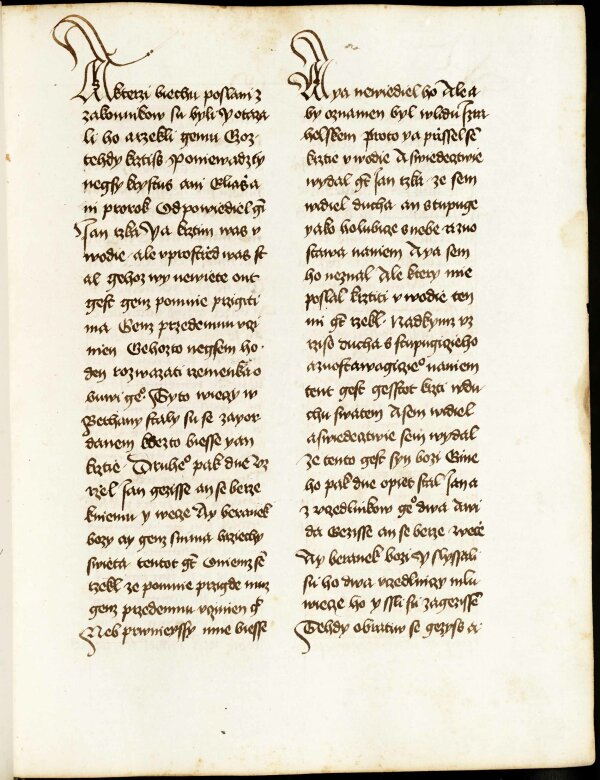 A kterzi biechu poslani z
zakonnikow su byli Y otaza
li ho a rzekli gemu Czoz
tehdy krztiss Poniewadz ty
negsy krystus ani Eliass a
ni prorok Odpowiediel gt
Jan rzka Ya krztim was v
wodie ale vprostrzed was st
al gehoz wy newiete ont
gest genz po mnie przigiti
ma Genz przedemnu vczi
nien Gehozto negsem ho
den rozwazati rzemenka o
buwi geo Tyto wieczy w
Bethany staly su se za yor
danem kdezto biesse yan
krztie Druheo pak dne vz
rzel Jan gezisse an se berze
kniemu y wece Ay beranek
bozy ay genz snima hrziechy
swieta tentot gt O niemz se
rzekl ze po mnie przigde muz
genz przedemnu vczinien gt
Neb prwnieyssy mne biesse
A ya newiediel ho Ale a
by oznamen byl w lidu Izra
helskem Proto ya przissel se
krztie v wodie A swiedectwie
wydal gt Jan rzka ze sem
widiel ducha an stupuge
yako holubicze s nebe a zuo
stawa na niem A ya sem
ho neznal Ale ktery mie
poslal krztiti v wodie ten
mi gt rzekl Nad kymz vz
rziss ducha s stupugiczieho
a zuostawagiczieo na niem
tent gest gesstot krzti w du
chu swatem A sem widiel
a swiedectwie sem wydal
ze tento gest syn bozi Gine
ho pak dne opiet stal Jan a
z vczedlnikow geo dwa A wi
da Gezisse an se berze wece
Ay beranek bozi Y slyssali
su ho dwa vczedlniczy mlu
wiece ho y ssli su za gezissem
Tehdy obratiw se gezyss a